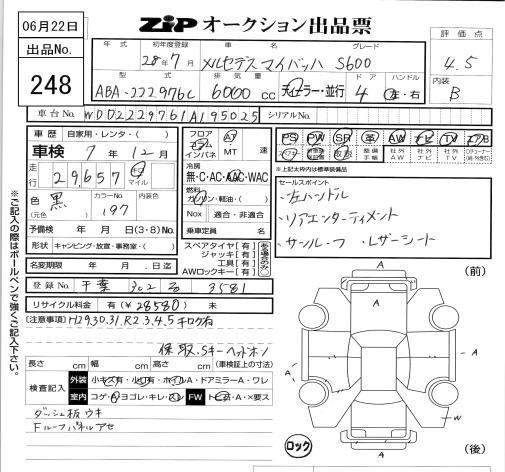 06月22日
ZiP オークション出品票
出品No.
248
年式 初年度登録 車名 グレード
28年7月 メルセデスマイバッハ S600
評価点
4.5
型式 排気量 ドア ハンドル
ABA-222976C 6000cc ディーラー・並行 4 左・右
内装
B
車台No. WDD2229761A195025 シリアルNo.
車歴 自家用・レンタ・( )
車検 7年12月
走行 29,657 キロ マイル
色 黒 カラーNo. 197 内装色
(元色)
予備検 年 月 日(3・8)No.
形状 キャンピング・放宣・事務室・( )
名変期限 年 月 日迄
登録No. 千葉 3581
リサイクル料金 有(¥28580) 未
フロア コラム インパネ AT MT 速
冷房
無・C・AC・AAC・WAC
燃料
ガソリン・軽油・( )
Nox 適合・非適合
乗車定員 名
スペアタイヤ[有]
ジャッキ[有]
工具[有]
AWロックキー[有]
PS PW SR 革 AW ナビ TV エアB
記録簿 取説 整備手帳 社外AW 社外ナビ 社外TV
※上記太枠内は標準装備品
セールスポイント
・左ハンドル
・リアエンターティメント
・サンルーフ ・レザーシート
[注意事項] H29.30.31.R2.3.4.5キロク有
保 取 Sキー ヘッドホン
長さ cm 幅 cm 高さ cm (車検証上の寸法)
検査記入 外装 小キズ有・小凹有・ホイルA・ドアミラーA・ワレ
室内 コゲ・穴・ヨゴレ・キレ・スレ FW トビ石・A・×要ス
ダッシュ板ウキ
Fルーフパネルアセ
※ご記入の際はボールペンで強くご記入下さい。
(前)
A
A
A
A
A
W
A
ロック
(後)